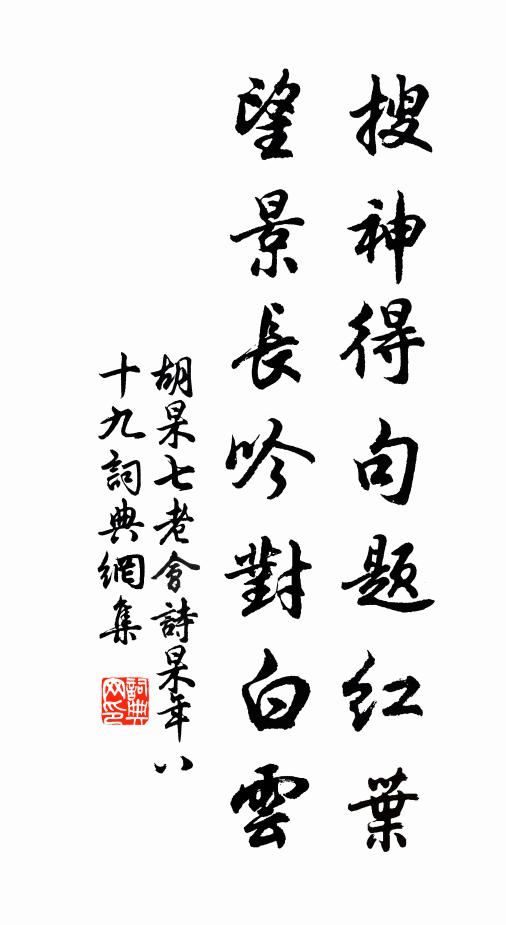 搜神得句題紅葉
望景長吟對白雲
胡杲七老會詩杲年八
十九詞典網集
詞典網印